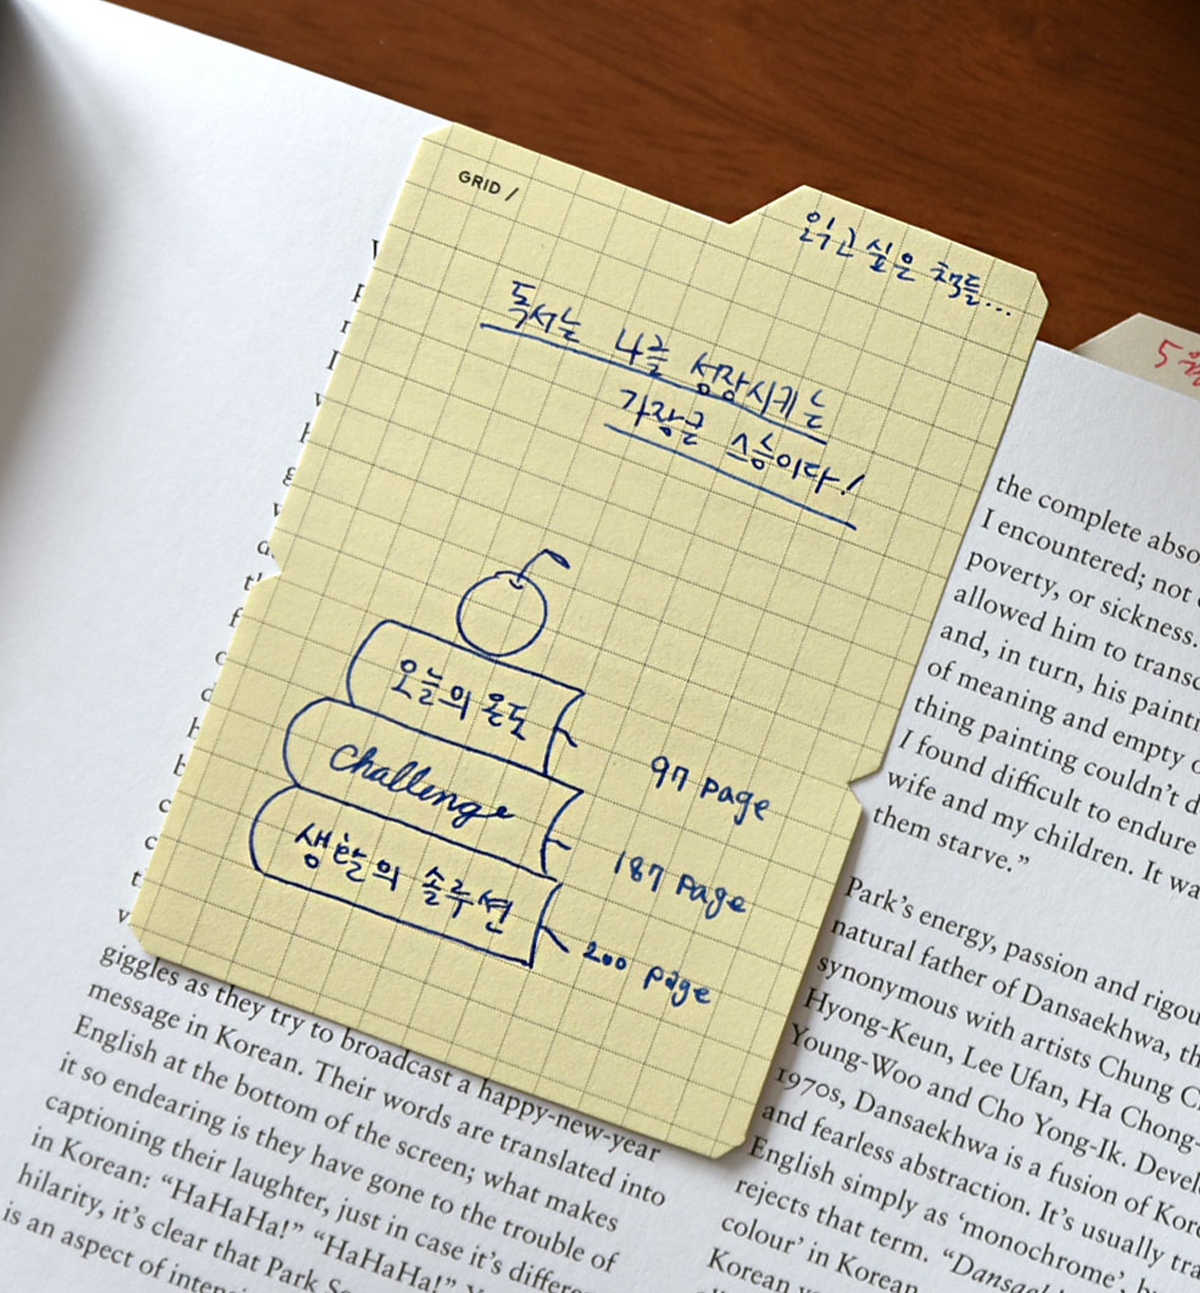 GRID /
읽고 싶은 책들...
독서는 나를 성장시키는
가장큰 스승이다!
오늘의 온도
challenge
생활의 솔루션
97 page
187 page
200 page
5월
giggles as they try to broadcast a happy-new-year
message in Korean. Their words are translated into
English at the bottom of the screen; what makes
it so endearing is they have gone to the trouble of
captioning their laughter, just in case it's
in Korean: "HaHaHa!" "HaHaHa!"
hilarity, it's clear that Park
is an aspect of
the complete
I encountered; not
poverty, or sickness.
allowed him to
and, in turn, his
of meaning and empty
thing painting couldn't
I found difficult to endure
wife and my children. It
them starve."
Park's energy, passion and
natural father of Dansaekhwa,
synonymous with artists Chung
Hyong-Keun, Lee Ufan, Ha Chong-
Young-Woo and Cho Yong-Ik.
1970s, Dansaekhwa is a fusion of
and fearless abstraction. It's usually
English simply as 'monochrome',
rejects that term.
colour' in Korean
Korean